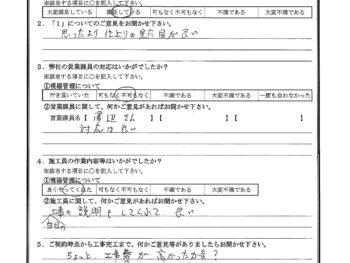 ※該当する項目に○を記入して下さい。
大変満足している 満足している 可もなく不可もなく 不満である 大変不満である
2．「1」についてのご意見をお聞かせ下さい。
思ったより仕上りの見た目が良い
3．弊社の営業課員の対応はいかがでしたか？
※該当する項目に○を記入して下さい。
①現場管理について
行き届いていた 可もなく不可もなく 不満である 大変不満である 一度も会わなかった
②営業課員に関して、何かご意見があればお聞かせ下さい。
営業課員名【渡辺さん】【 】【 】
対応は良い
4．施工員の作業内容等はいかがでしたか？
※該当する項目に○を記入して下さい。
①現場管理について
良くやってくれた 可もなく不可もなく 不満である 大変不満である
②施工員に関して、何かご意見があればお聞かせ下さい。
の説明もしてくれて良い
当日の
5．ご契約時点から工事完工まで、何かご意見等がありましたらお聞かせ下さい。
ちょっと、工事費が高かったかな？